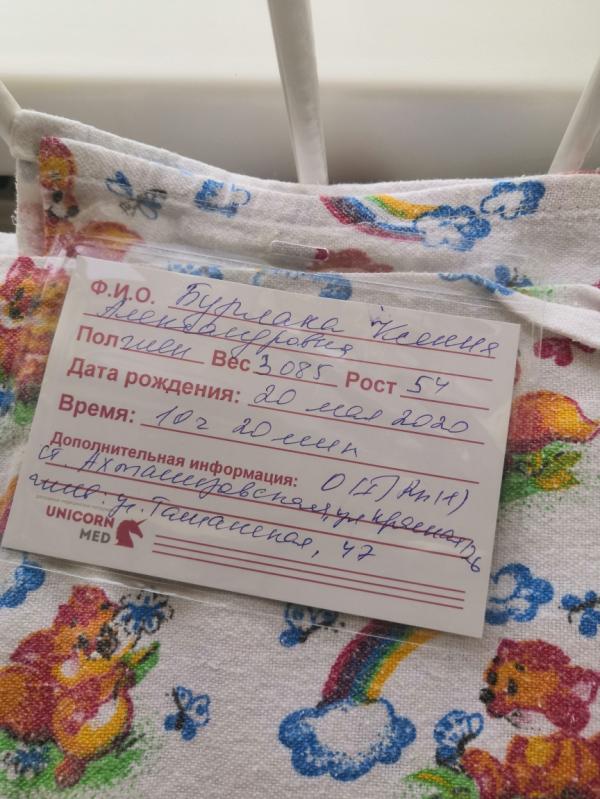 Ф.И.О. Бурлака Ксения
Александровна
Пол жен Вес 3085 Рост 54
Дата рождения: 20 мая 2020
Время: 10 ч 20 мин
Дополнительная информация: O(I) Rh(+)
ст. Ахтанизовская, ул Красная 126
ул. Таманская, 47
UNICORN
MED